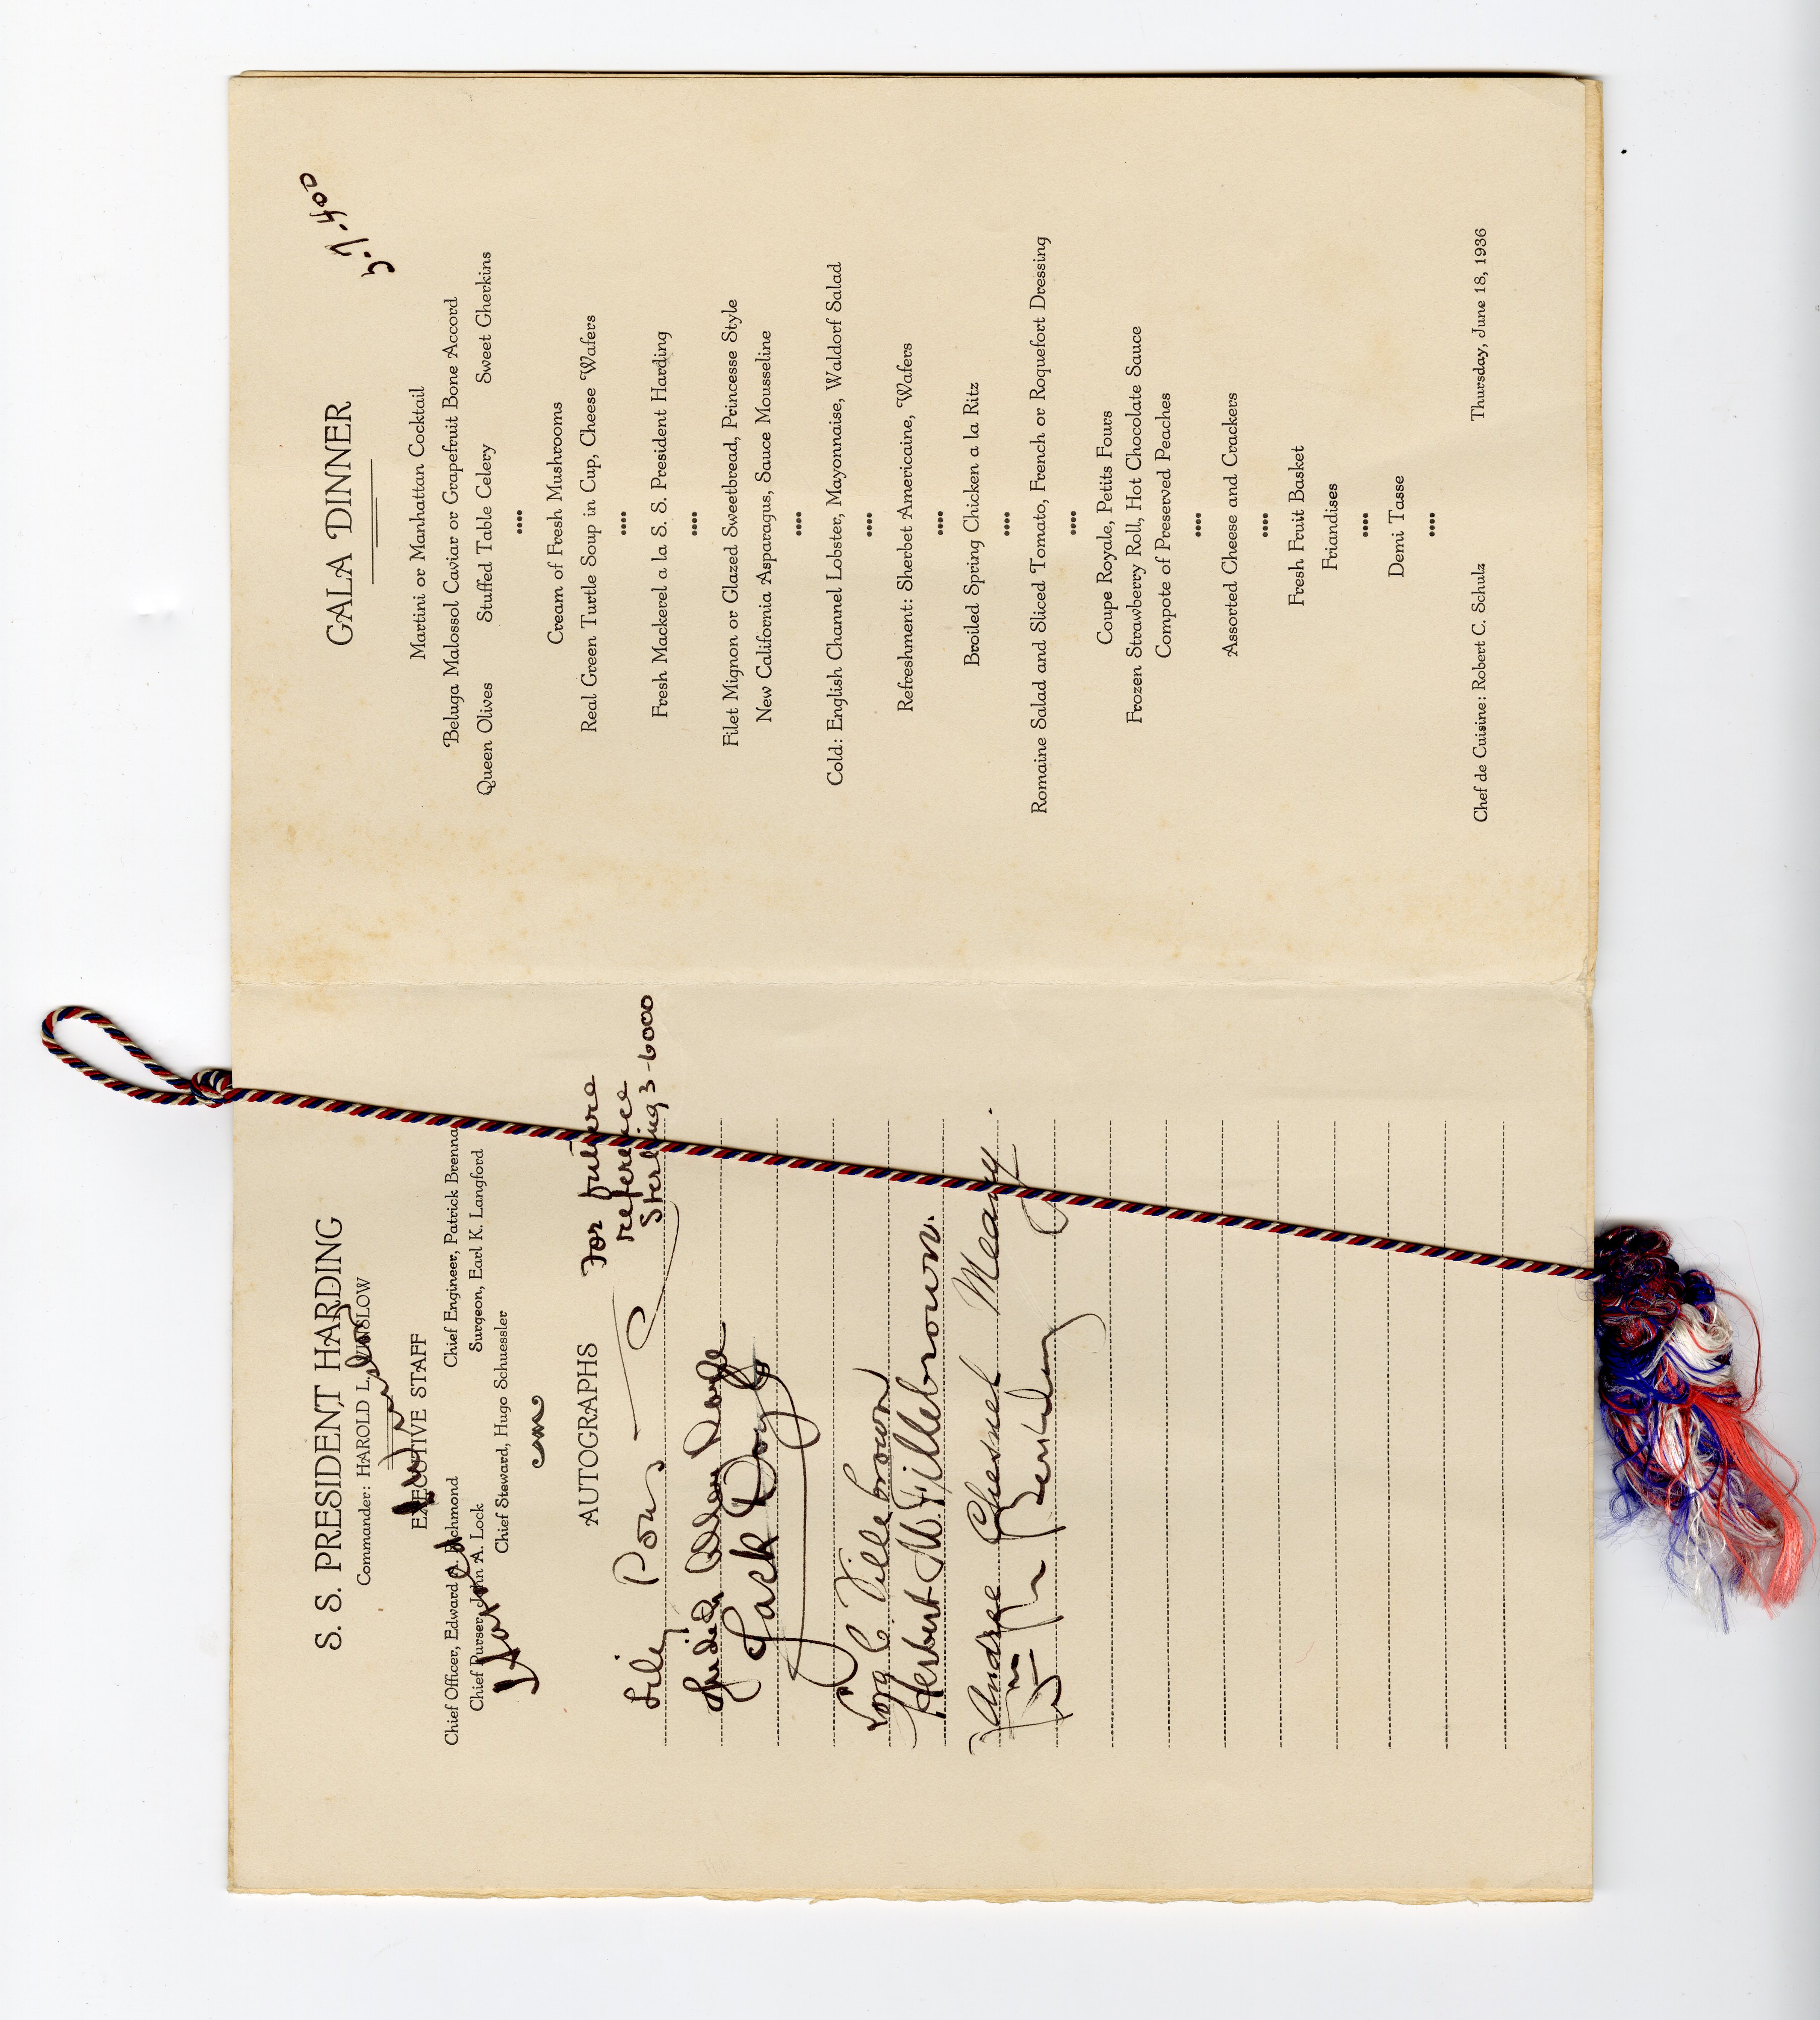 S. S. PRESIDENT HARDING
Commander: HAROLD L. WINSLOW
EXECUTIVE STAFF
Chief Officer, Edward A. Richmond Chief Engineer, Patrick Brennan
Chief Purser, John A. Lock Surgeon, Earl K. Langford
Chief Steward, Hugo Schuessler
Harold Winslow
AUTOGRAPHS
For future
reference
Sterling 3-6000
Lily Pons
Jack Doyle
C. Fillebrown
Herbert M. Fillebrown.
Andree Chesnel Meany.
GALA DINNER
Martini or Manhattan Cocktail
Beluga Malossol Caviar or Grapefruit Bone Accord
Queen Olives Stuffed Table Celery Sweet Gherkins
••••
Cream of Fresh Mushrooms
Real Green Turtle Soup in Cup, Cheese Wafers
••••
Fresh Mackerel a la S. S. President Harding
••••
Filet Mignon or Glazed Sweetbread, Princesse Style
New California Asparagus, Sauce Mousseline
••••
Cold: English Channel Lobster, Mayonnaise, Waldorf Salad
••••
Refreshment: Sherbet Americaine, Wafers
••••
Broiled Spring Chicken a la Ritz
••••
Romaine Salad and Sliced Tomato, French or Roquefort Dressing
••••
Coupe Royale, Petits Fours
Frozen Strawberry Roll, Hot Chocolate Sauce
Compote of Preserved Peaches
••••
Assorted Cheese and Crackers
••••
Fresh Fruit Basket
Friandises
••••
Demi Tasse
••••
Chef de Cuisine: Robert C. Schulz Thursday, June 18, 1936